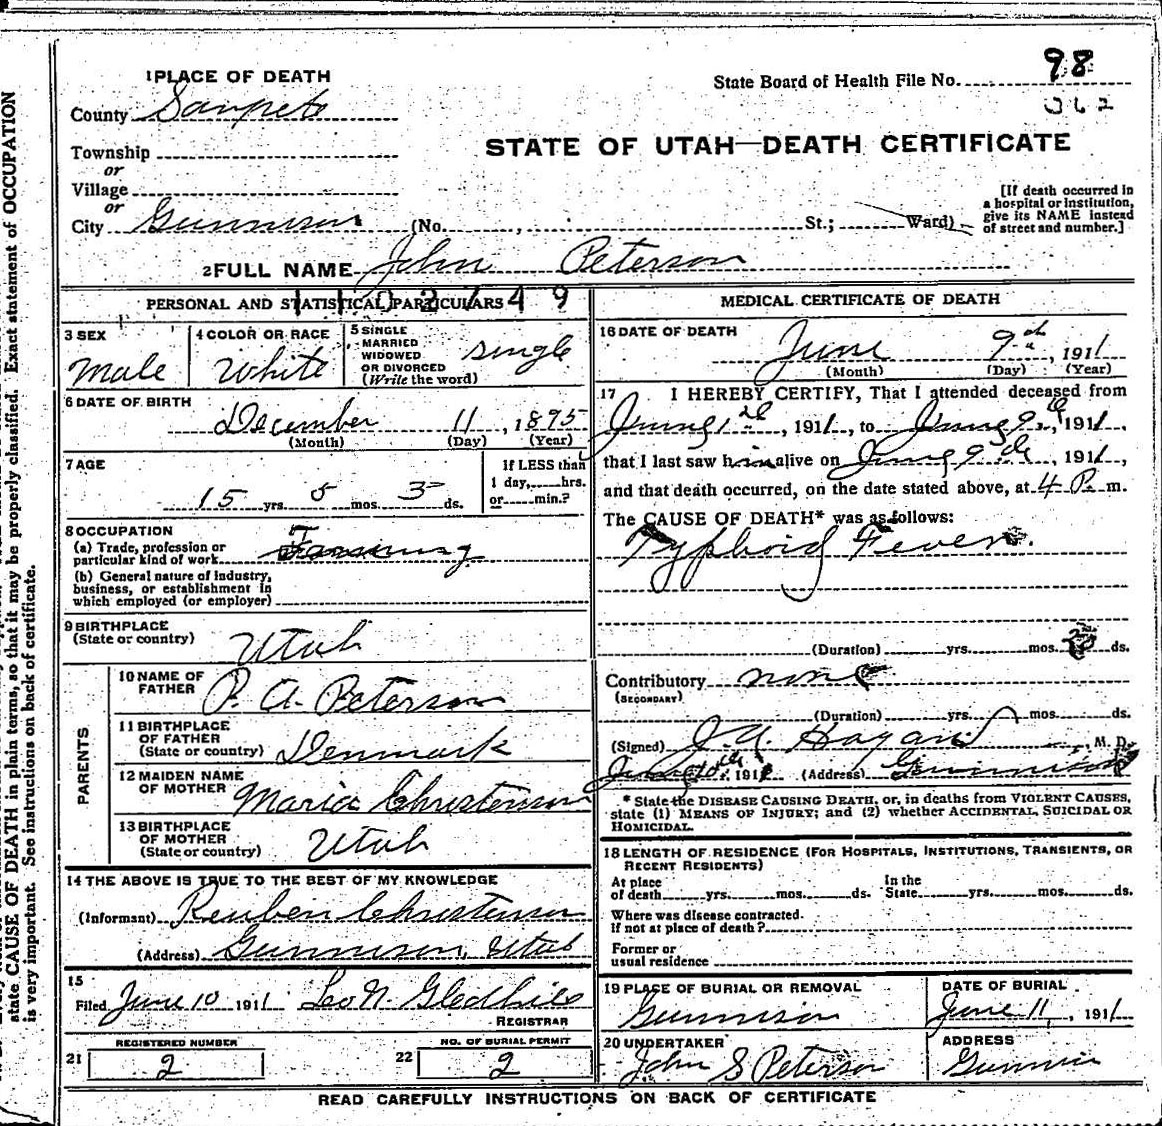 1 PLACE OF DEATH
State Board of Health File No. 98
362
County Sanpete
STATE OF UTAH—DEATH CERTIFICATE
Township
or
Village
or
City Gunnison (No. , St.; Ward)
[If death occurred in
a hospital or institution,
give its NAME instead
of street and number.]
2 FULL NAME John Peterson
PERSONAL AND STATISTICAL PARTICULARS
1102749
3 SEX
Male
4 COLOR OR RACE
White
5 SINGLE
MARRIED
WIDOWED
OR DIVORCED
(Write the word)
single
6 DATE OF BIRTH
December 11, 1895
(Month) (Day) (Year)
7 AGE
15 yrs. 5 mos. 3 ds.
If LESS than
1 day, hrs.
or min.?
8 OCCUPATION
(a) Trade, profession or
particular kind of work Farming
(b) General nature of Industry,
business, or establishment in
which employed (or employer)
9 BIRTHPLACE
(State or country) Utah
PARENTS
10 NAME OF
FATHER P. A. Peterson
11 BIRTHPLACE
OF FATHER
(State or country) Denmark
12 MAIDEN NAME
OF MOTHER Maria Christenson
13 BIRTHPLACE
OF MOTHER
(State or country) Utah
14 THE ABOVE IS TRUE TO THE BEST OF MY KNOWLEDGE
(Informant) Reuben Christenson
(Address) Gunnison, Utah
15
Filed June 10 1911 Leo N. Gledhill
REGISTRAR
21 REGISTERED NUMBER
2
22 NO. OF BURIAL PERMIT
2
MEDICAL CERTIFICATE OF DEATH
16 DATE OF DEATH
June 9th, 1911
(Month) (Day) (Year)
17 I HEREBY CERTIFY, That I attended deceased from
June 1st, 1911, to June 9th, 1911,
that I last saw him alive on June 9th, 1911,
and that death occurred, on the date stated above, at 4 P. m.
The CAUSE OF DEATH* was as follows:
Typhoid Fever.
(Duration) yrs. mos. ds.
Contributory none
(SECONDARY)
(Duration) yrs. mos. ds.
(Signed) J. A. Hagan, M. D.
June 10th, 1911 (Address) Gunnison
* State the DISEASE CAUSING DEATH, or, in deaths from VIOLENT CAUSES,
state (1) MEANS OF INJURY; and (2) whether ACCIDENTAL, SUICIDAL OR
HOMICIDAL.
18 LENGTH OF RESIDENCE (FOR HOSPITALS, INSTITUTIONS, TRANSIENTS, OR
RECENT RESIDENTS)
At place
of death yrs. mos. ds.
In the
State yrs. mos. ds.
Where was disease contracted.
if not at place of death?
Former or
usual residence
19 PLACE OF BURIAL OR REMOVAL
Gunnison
DATE OF BURIAL
June 11, 1911
20 UNDERTAKER
John S Peterson
ADDRESS
Gunnison
READ CAREFULLY INSTRUCTIONS ON BACK OF CERTIFICATE
state CAUSE OF DEATH in plain terms, so that it may be properly classified. Exact statement of OCCUPATION
is very important. See instructions on back of certificate.